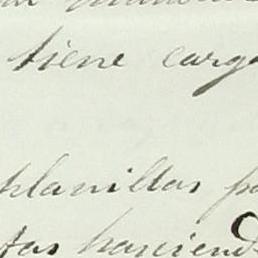 tiene carg
planillas p
tas haciend